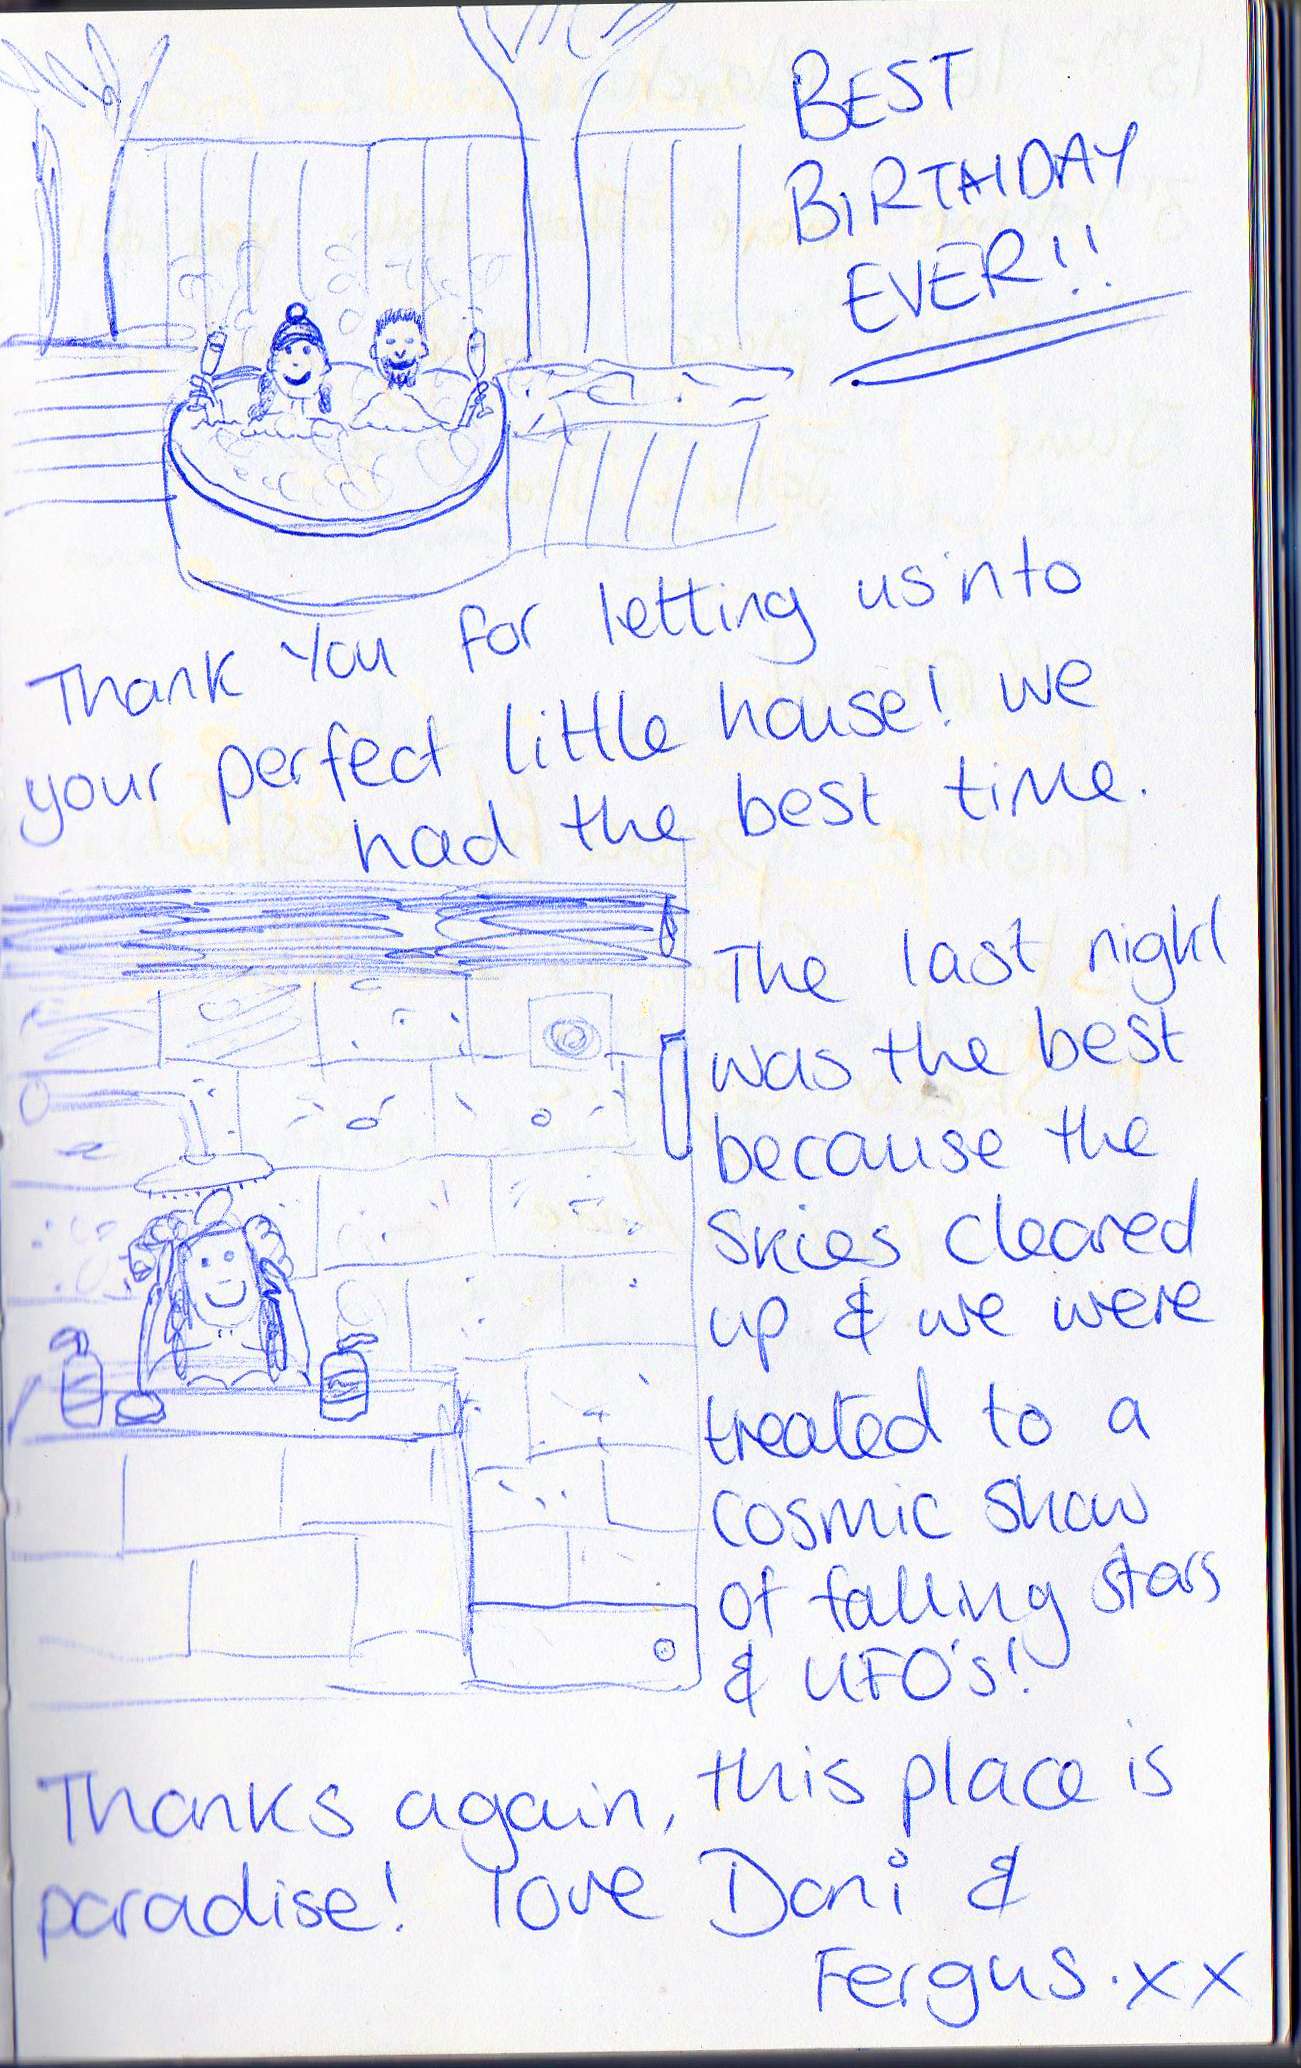 BEST
BIRTHDAY
EVER!!
Thank You for letting us into
your perfect little house! we
had the best time.
The last night
was the best
because the
Skies cleared
up & we were
treated to a
cosmic show
of falling stars
& UFO's!
Thanks again, this place is
paradise! love Dani &
Fergus. xx